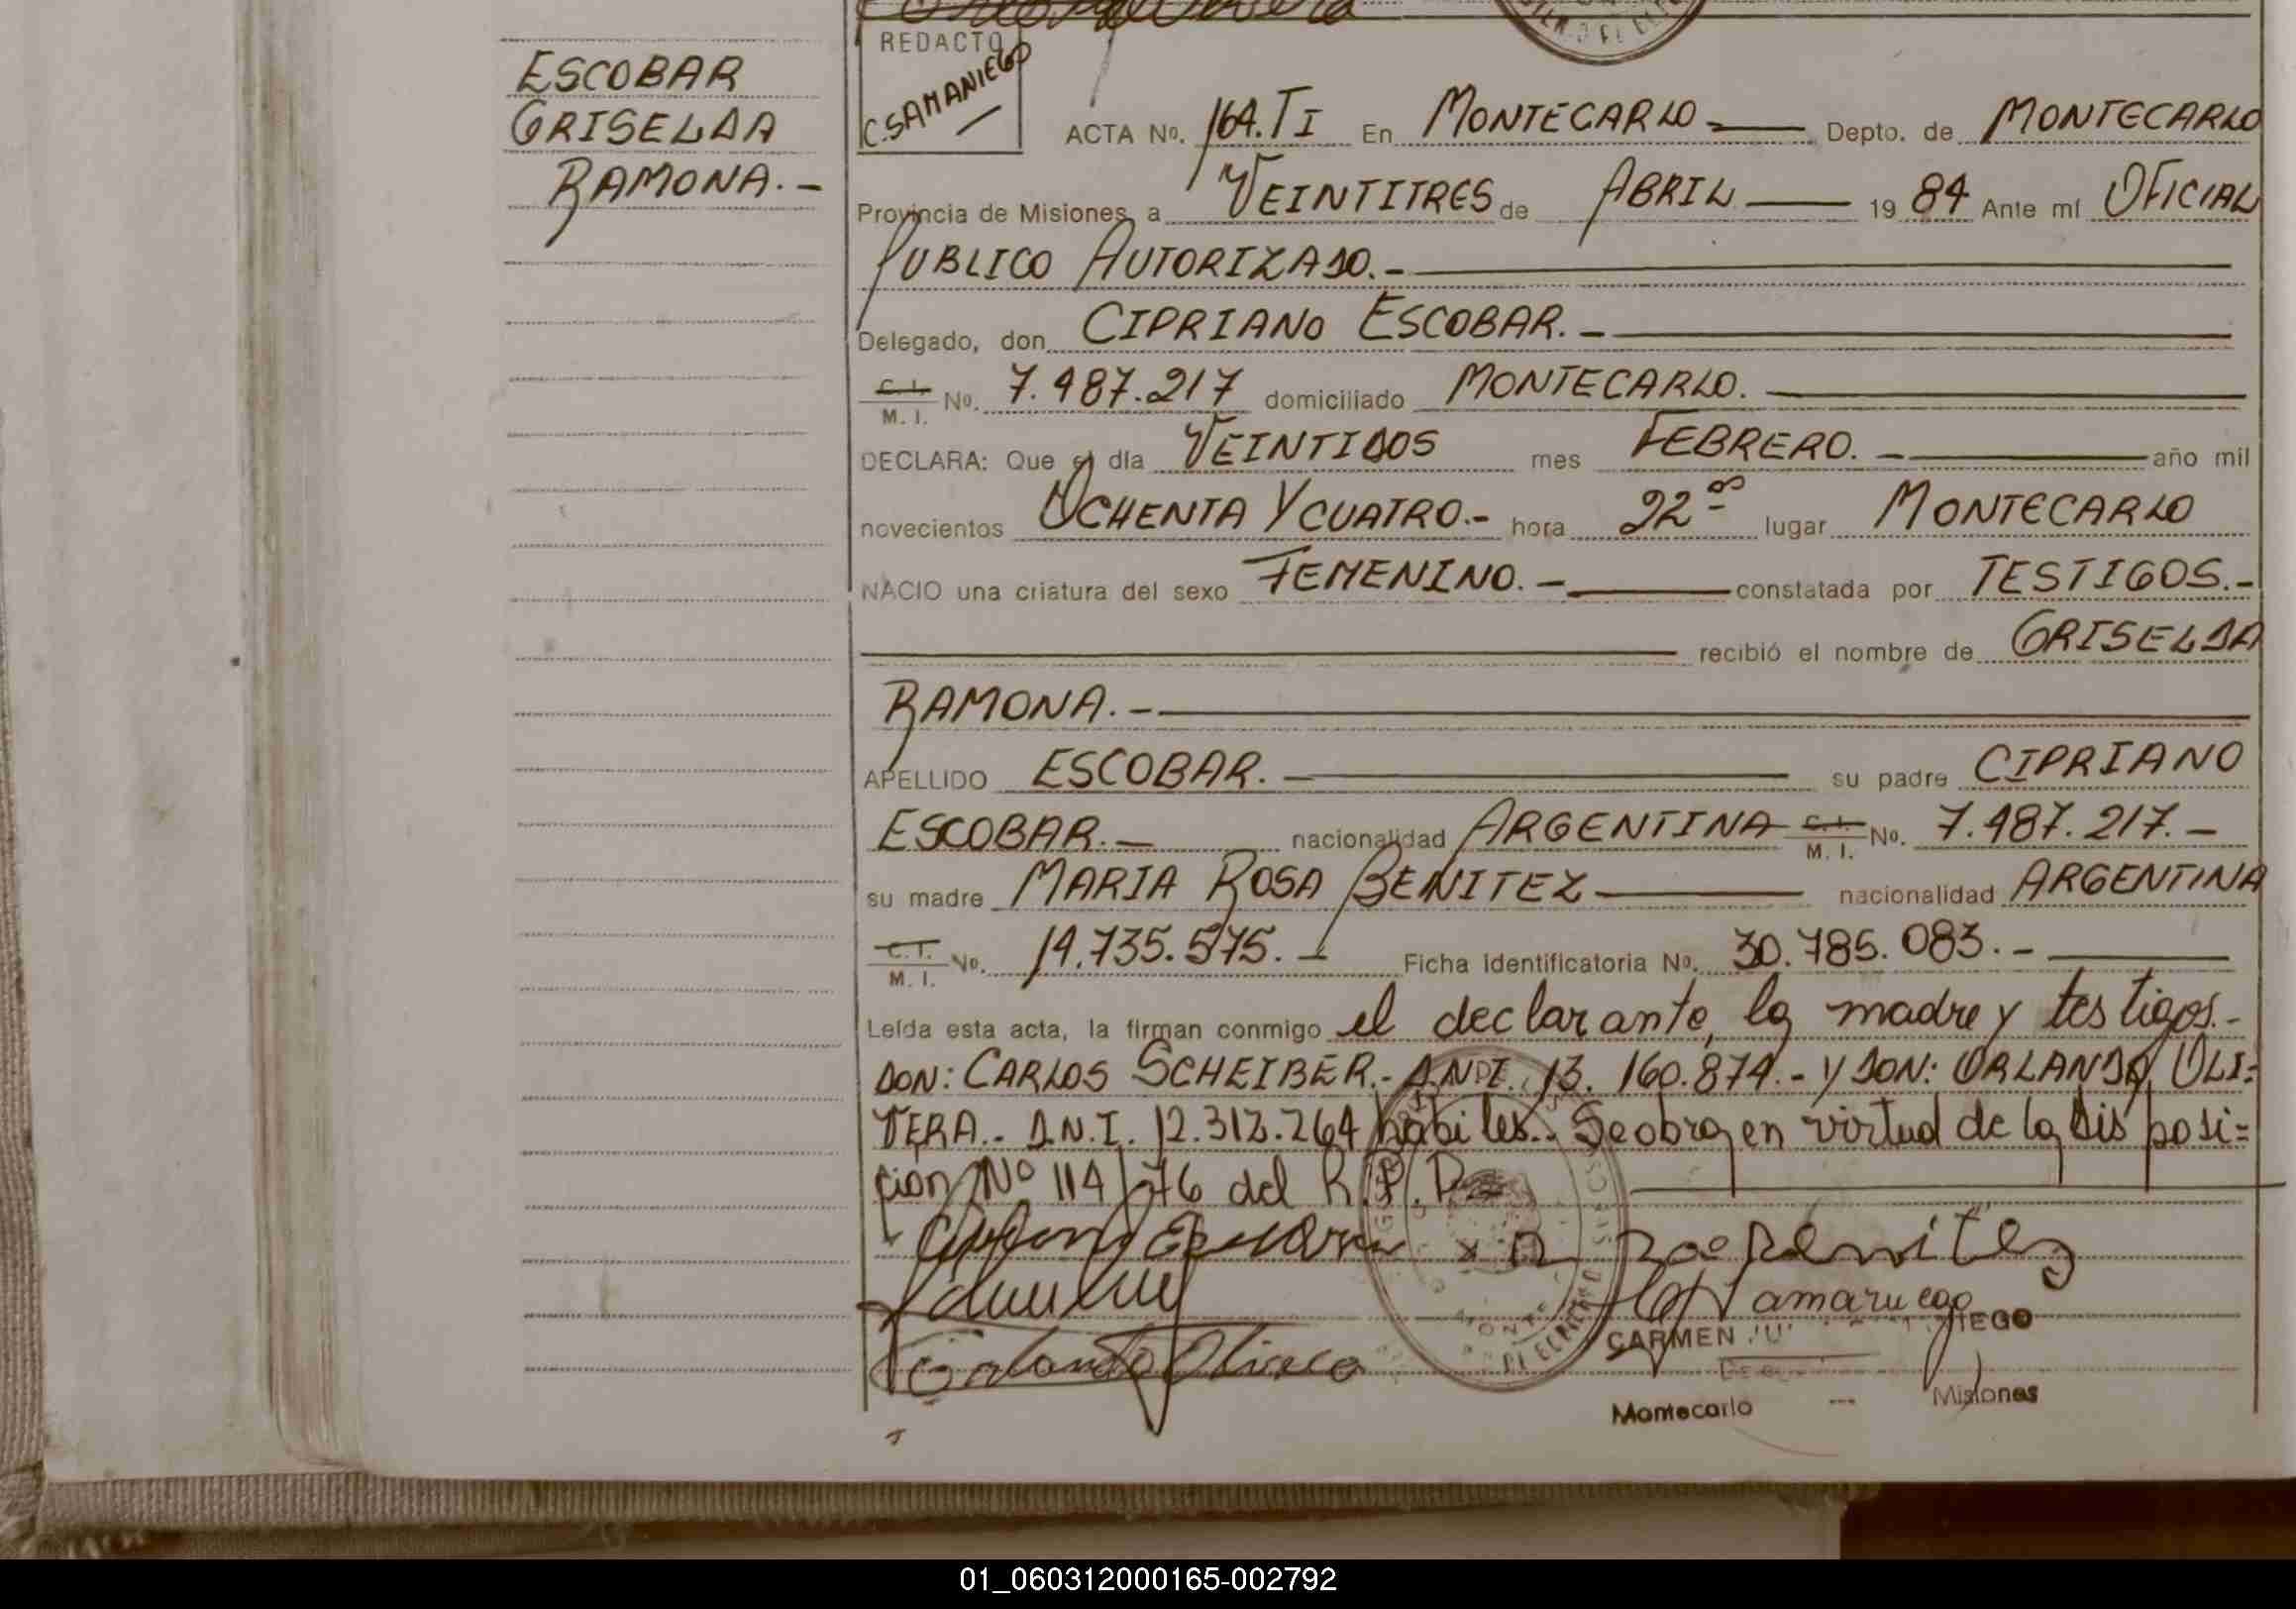 ESCOBAR
GRISELDA
RAMONA.-
REDACTO
C. SAMANIEGO
ACTA No. 164. TI En MONTECARLO Depto. de MONTECARLO
Provincia de Misiones, a VEINTITRES de ABRIL 19 84 Ante mí OFICIAL
PUBLICO AUTORIZADO.-
Delegado, don CIPRIANO ESCOBAR.-
C.I. M.I. No. 7.487.217 domiciliado MONTECARLO.
DECLARA: Que el día VEINTIDOS mes FEBRERO.- año mil
novecientos OCHENTA Y CUATRO.- hora 22 lugar MONTECARLO
NACIO una criatura del sexo FEMENINO.- constatada por TESTIGOS.-
recibió el nombre de GRISELDA
RAMONA.-
APELLIDO ESCOBAR. su padre CIPRIANO
ESCOBAR.- nacionalidad ARGENTINA C.I. M.I. No. 7.487.217.-
su madre MARIA ROSA BENITEZ nacionalidad ARGENTINA
C.I. M.I. No. 14.735.575.- Ficha Identificatoria No. 30.785.083.-
Leída esta acta, la firman conmigo el declarante, la madre y testigos.-
DON: CARLOS SCHEIBER.- D.N.I. 13.160.874.- Y DON: ORLANDO OLI=
VERA.- D.N.I. 12.313.264 habiles.- Se obra en virtud de la Disposi=
cion Nº 114/76 del R.P.P.
Orlando Olivera
CARMEN
Montecarlo --- Misiones
01_060312000165-002792